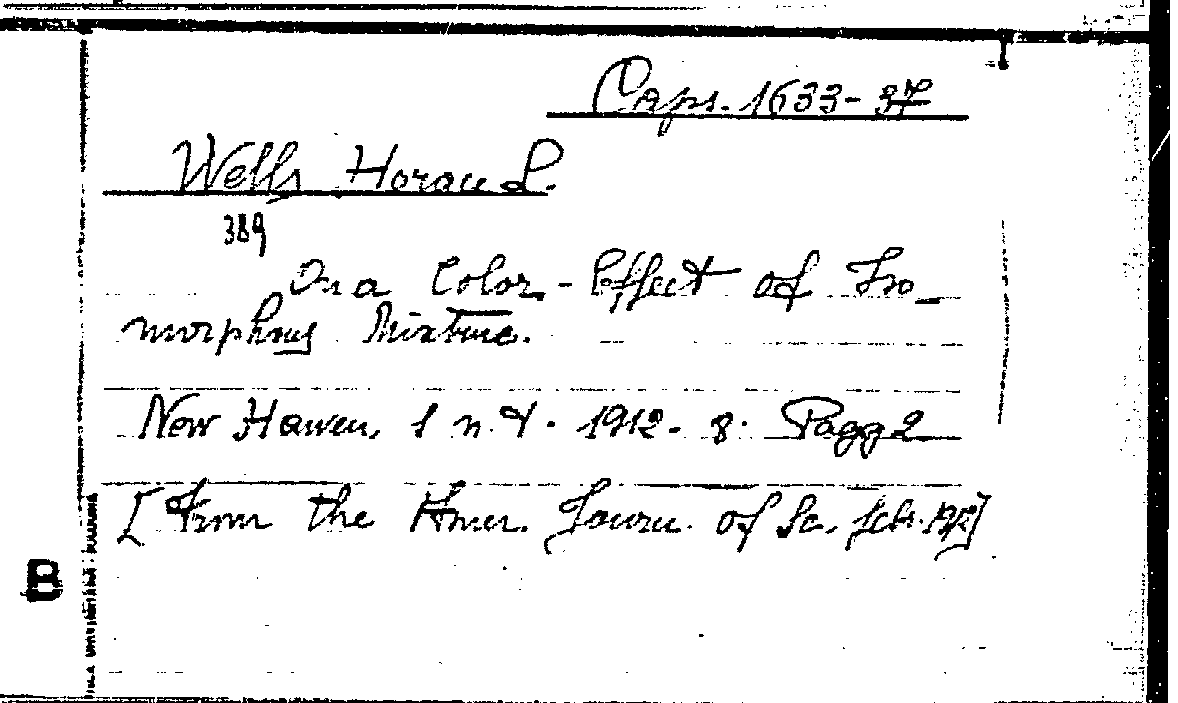 Caps. 1633-37
Wells Horace L.
389
On a Color-Effect of Iso-
morphous Mixture.
New Haven, s. n. t. 1912. 8. Pagg 2
[From the Amer. Journ. of Sc. febr. 1912]
B